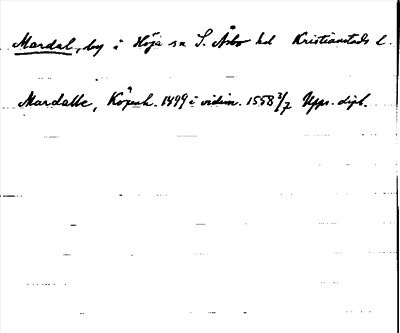 Mardal, by i Höja sn S. Åsbo hd Kristianstads l.
Mardalle, Köpenh. 1499 i vidim. 1558 2/7 Upps. dipl.